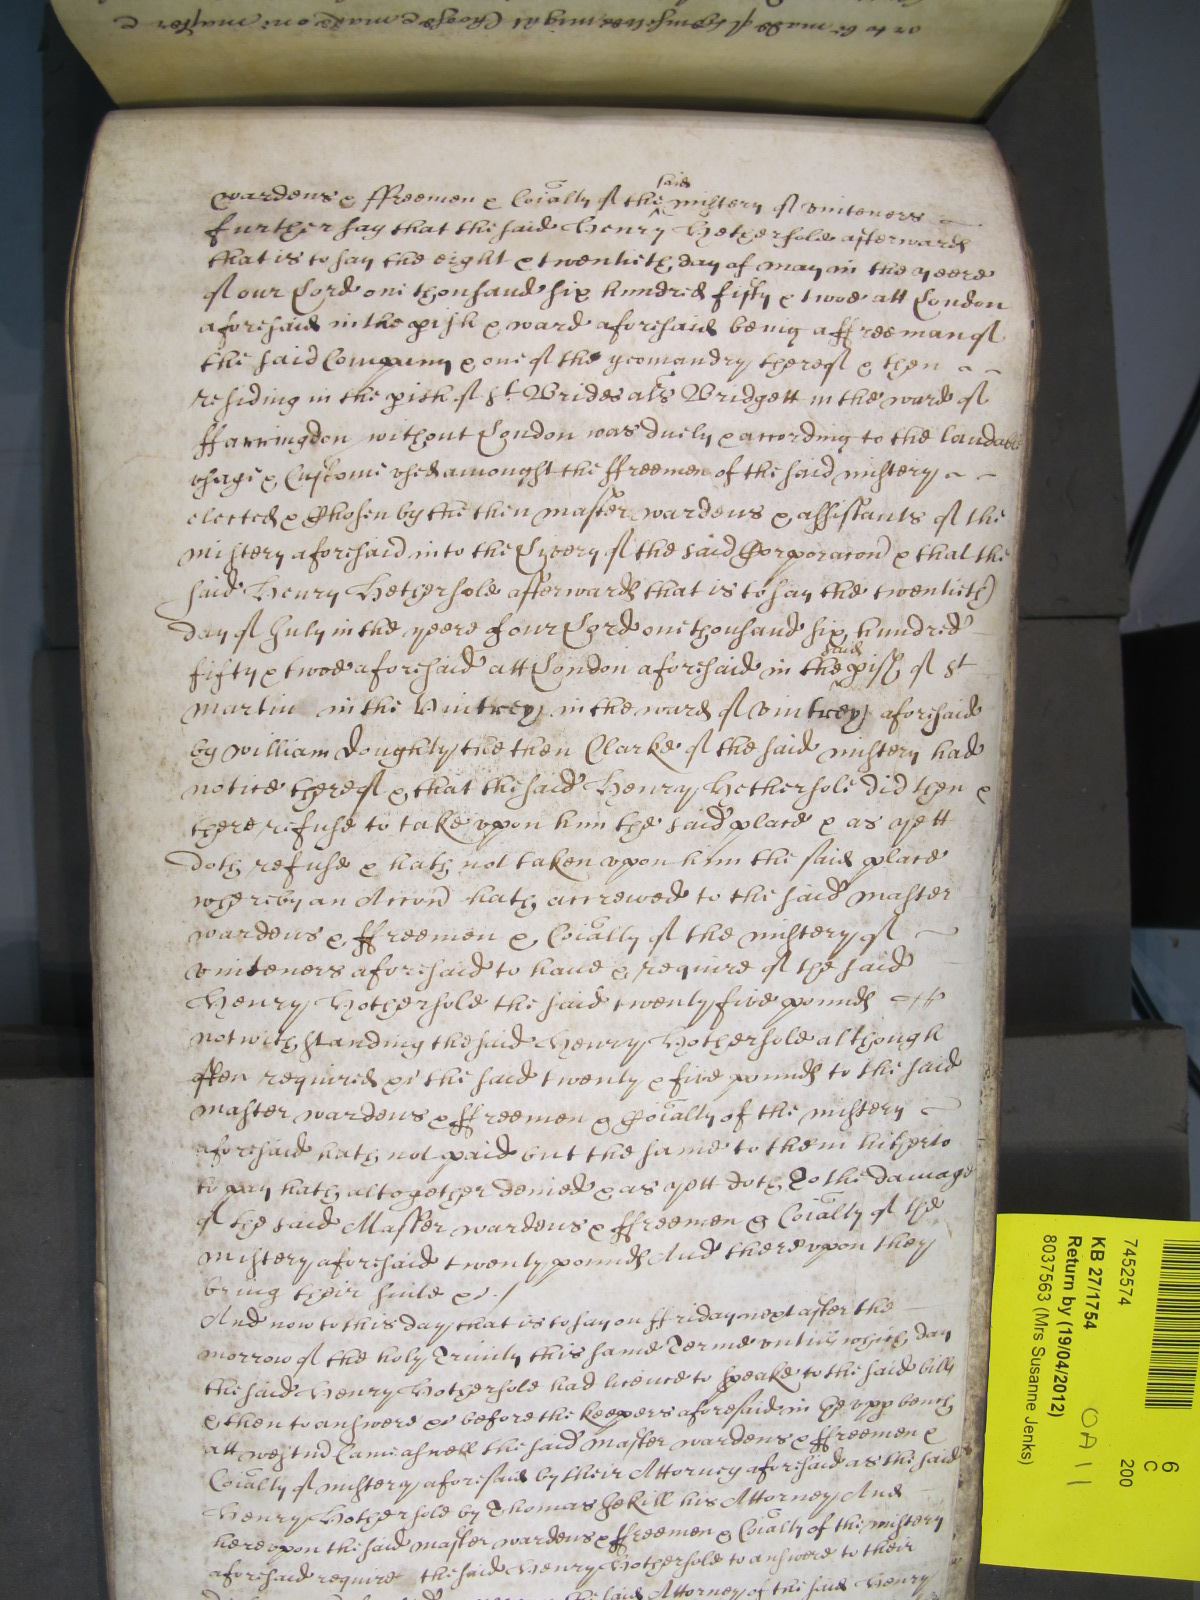 wardens & ffreemen & Coialty of the said mistery of vinteners
further say that the said Henry Hethersole afterwards
that is to say the eight & twentieth day of may in the yeere
of our Lord one thousand six hundred fifty & twoe att London
aforesaid in the pish & ward aforesaid being a ffreeman of
the said Company & one of the yeomandry thereof & then
residing in the pish of St Brides als Bridgett in the ward of
ffarringdon without London was duely & according to the laudable
vsage & Custome vsed amongst the ffreemen of the said mistery
elected & Chosen by the then master wardens & assistants of the
mistery aforesaid into the Livery of the said Corporacon & that the
said Henry Hethersole afterwards that is to say the twentieth
day of July in the yeere of our Lord one thousand six hundred
fifty & twoe aforesaid att London aforesaid in the said pish of St
martin in the Vintrey in the ward of Vintrey aforesaid
by william Doughty the then Clarke of the said mistery had
notice thereof & that the said Henry Hethersole did then &
there refuse to take vpon him the said place & as yett
doth refuse & hath not taken vpon him the said place
whereby an Accon hath accrewed to the said master
wardens & ffreemen & Coialty of the mistery of
vinteners aforesaid to haue & require of the said
Henry Hethersole the said twenty five pounds
notwithstanding the said Henry Hethersole although
often required &c the said twenty & five pounds to the said
master wardens & ffreemen & Coialty of the mistery
aforesaid hath not paid but the same to them hitherto
to pay hath altogether denied & as yett doth To the damage
of the said Master wardens & ffreemen & Coialty of the
mistery aforesaid twenty pounds And therevpon they
bring their suite &c
And now to this day that is to say on ffriday next after the
morrow of the holy Trinity this same Terme vntill which day
the said Henry Hethersole had licence to speake to the said bill
& then to answere &c before the keepers aforesaid in the vpp bench
att westmr came aswell the said master wardens & ffreemen &
Coialty of mistery aforesaid by their Attorney aforesaid as the said
Henry Hethersole by Thomas Hekill his Attorney And
herevpon the said master wardens & ffreemen & Coialty of the mistery
aforesaid require the said Henry Hethersole to answere to their
the said Attorney of the said Henry
7452574
KB 27/1754
Return by (19/04/2012)
8037563 (Mrs Susanne Jenks)
6
C
200
OA 11